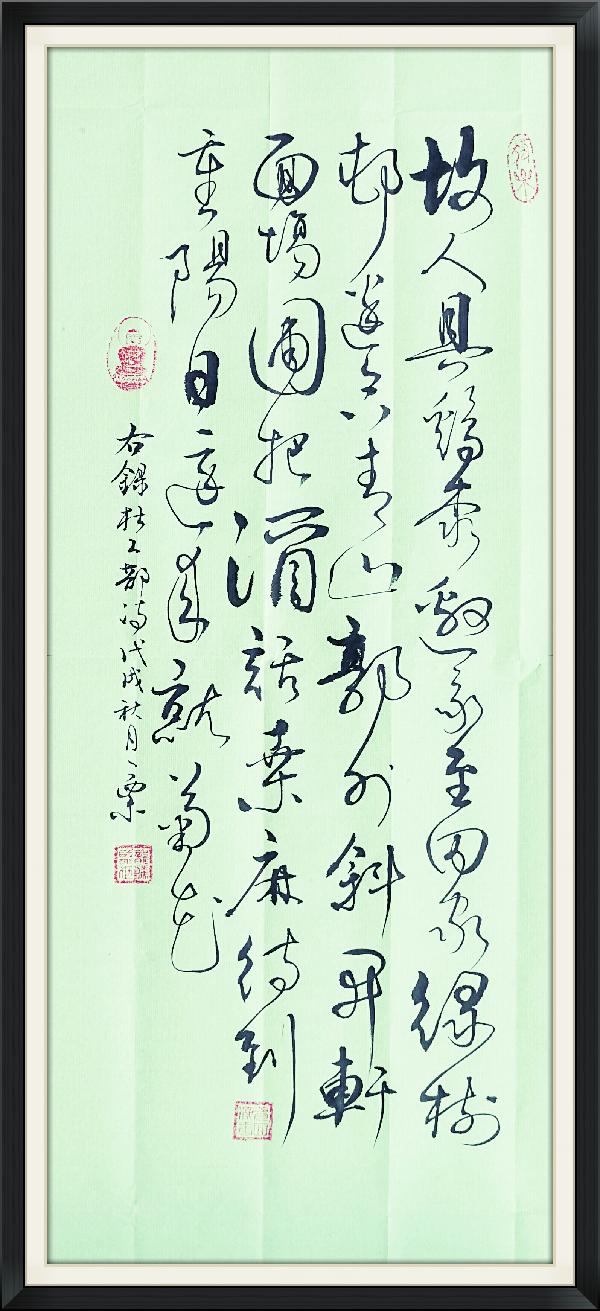 故人具鷄黍邀我至田家緑樹
邨邊合青山郭外斜開軒
面場圃把酒話桑麻待到
重陽日還來就菊花
右錄杜工部詩戊戌秋月一粟